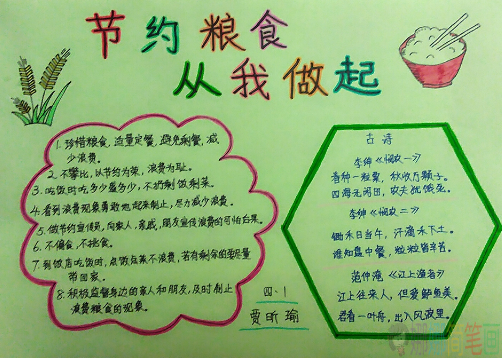 节约粮食
从我做起
1. 珍惜粮食，适量定餐，避免剩餐，减
少浪费。
2. 不攀比，以节约为荣，浪费为耻。
3. 吃饭时吃多少盛多少，不扔剩饭剩菜。
4. 看到浪费现象勇敢地起来制止，尽力减少浪费。
5. 做节约宣传员，向家人，亲戚，朋友宣传浪费的可怕后果。
6. 不偏食，不挑食。
7. 到饭店吃饭时，点饭点菜不浪费，若有剩余的要尽量
带回家。
8. 积极监督身边的家人和朋友，及时制止
浪费粮食的现象。
四·1
贾昕瑜
古诗
李绅《悯农一》
春种一粒粟，秋收万颗子。
四海无闲田，农夫犹饿死。
李绅《悯农二》
锄禾日当午，汗滴禾下土。
谁知盘中餐，粒粒皆辛苦。
范仲淹《江上渔者》
江上往来人，但爱鲈鱼美。
君看一叶舟，出入风波里。